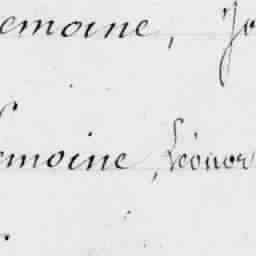 emoine, Jo
emoine, Léonor